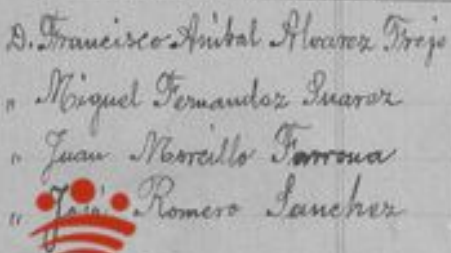 D. Francisco Anibal Alvarez Trejo
" Miguel Fernandez Suarez
" Juan Morcillo Farrona
" José Romero Sanchez